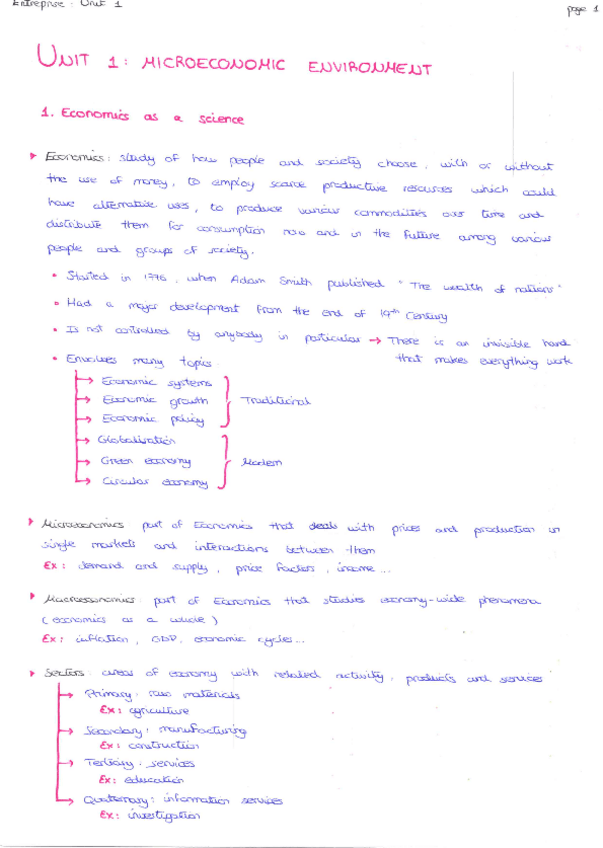 Entreprise : Unit 1
page 1
UNIT 1: MICROECONOMIC ENVIRONMENT
1. Economics as a science
Economics: study of how people and society choose, with or without
the use of money, to employ scarce productive resources which could
have alternative uses, to produce various commodities over time and
distribute them for consumption now and in the future among various
people and groups of society.
• Started in 1776, when Adam Smith published "The wealth of nations"
• Had a major development from the end of 19th Century
• Is not controlled by anybody in particular → There is an invisible hand
that makes everything work
• Envolves many topics:
→ Economic systems
→ Economic growth
→ Economic policy
Traditional
→ Globalisation
→ Green economy
→ Circular economy
Modern
Microeconomics: part of Economics that deals with prices and production in
single markets and interactions between them
Ex: demand and supply, price factors, income...
Macroeconomics: part of Economics that studies economy-wide phenomena
(economics as a whole)
Ex: inflation, GDP, economic cycles...
Sectors: areas of economy with related activity, products and services
→ Primary: raw materials
Ex: agriculture
→ Secondary: manufacturing
Ex: construction
→ Tertiary: services
Ex: education
→ Quaternary: information services
Ex: investigation